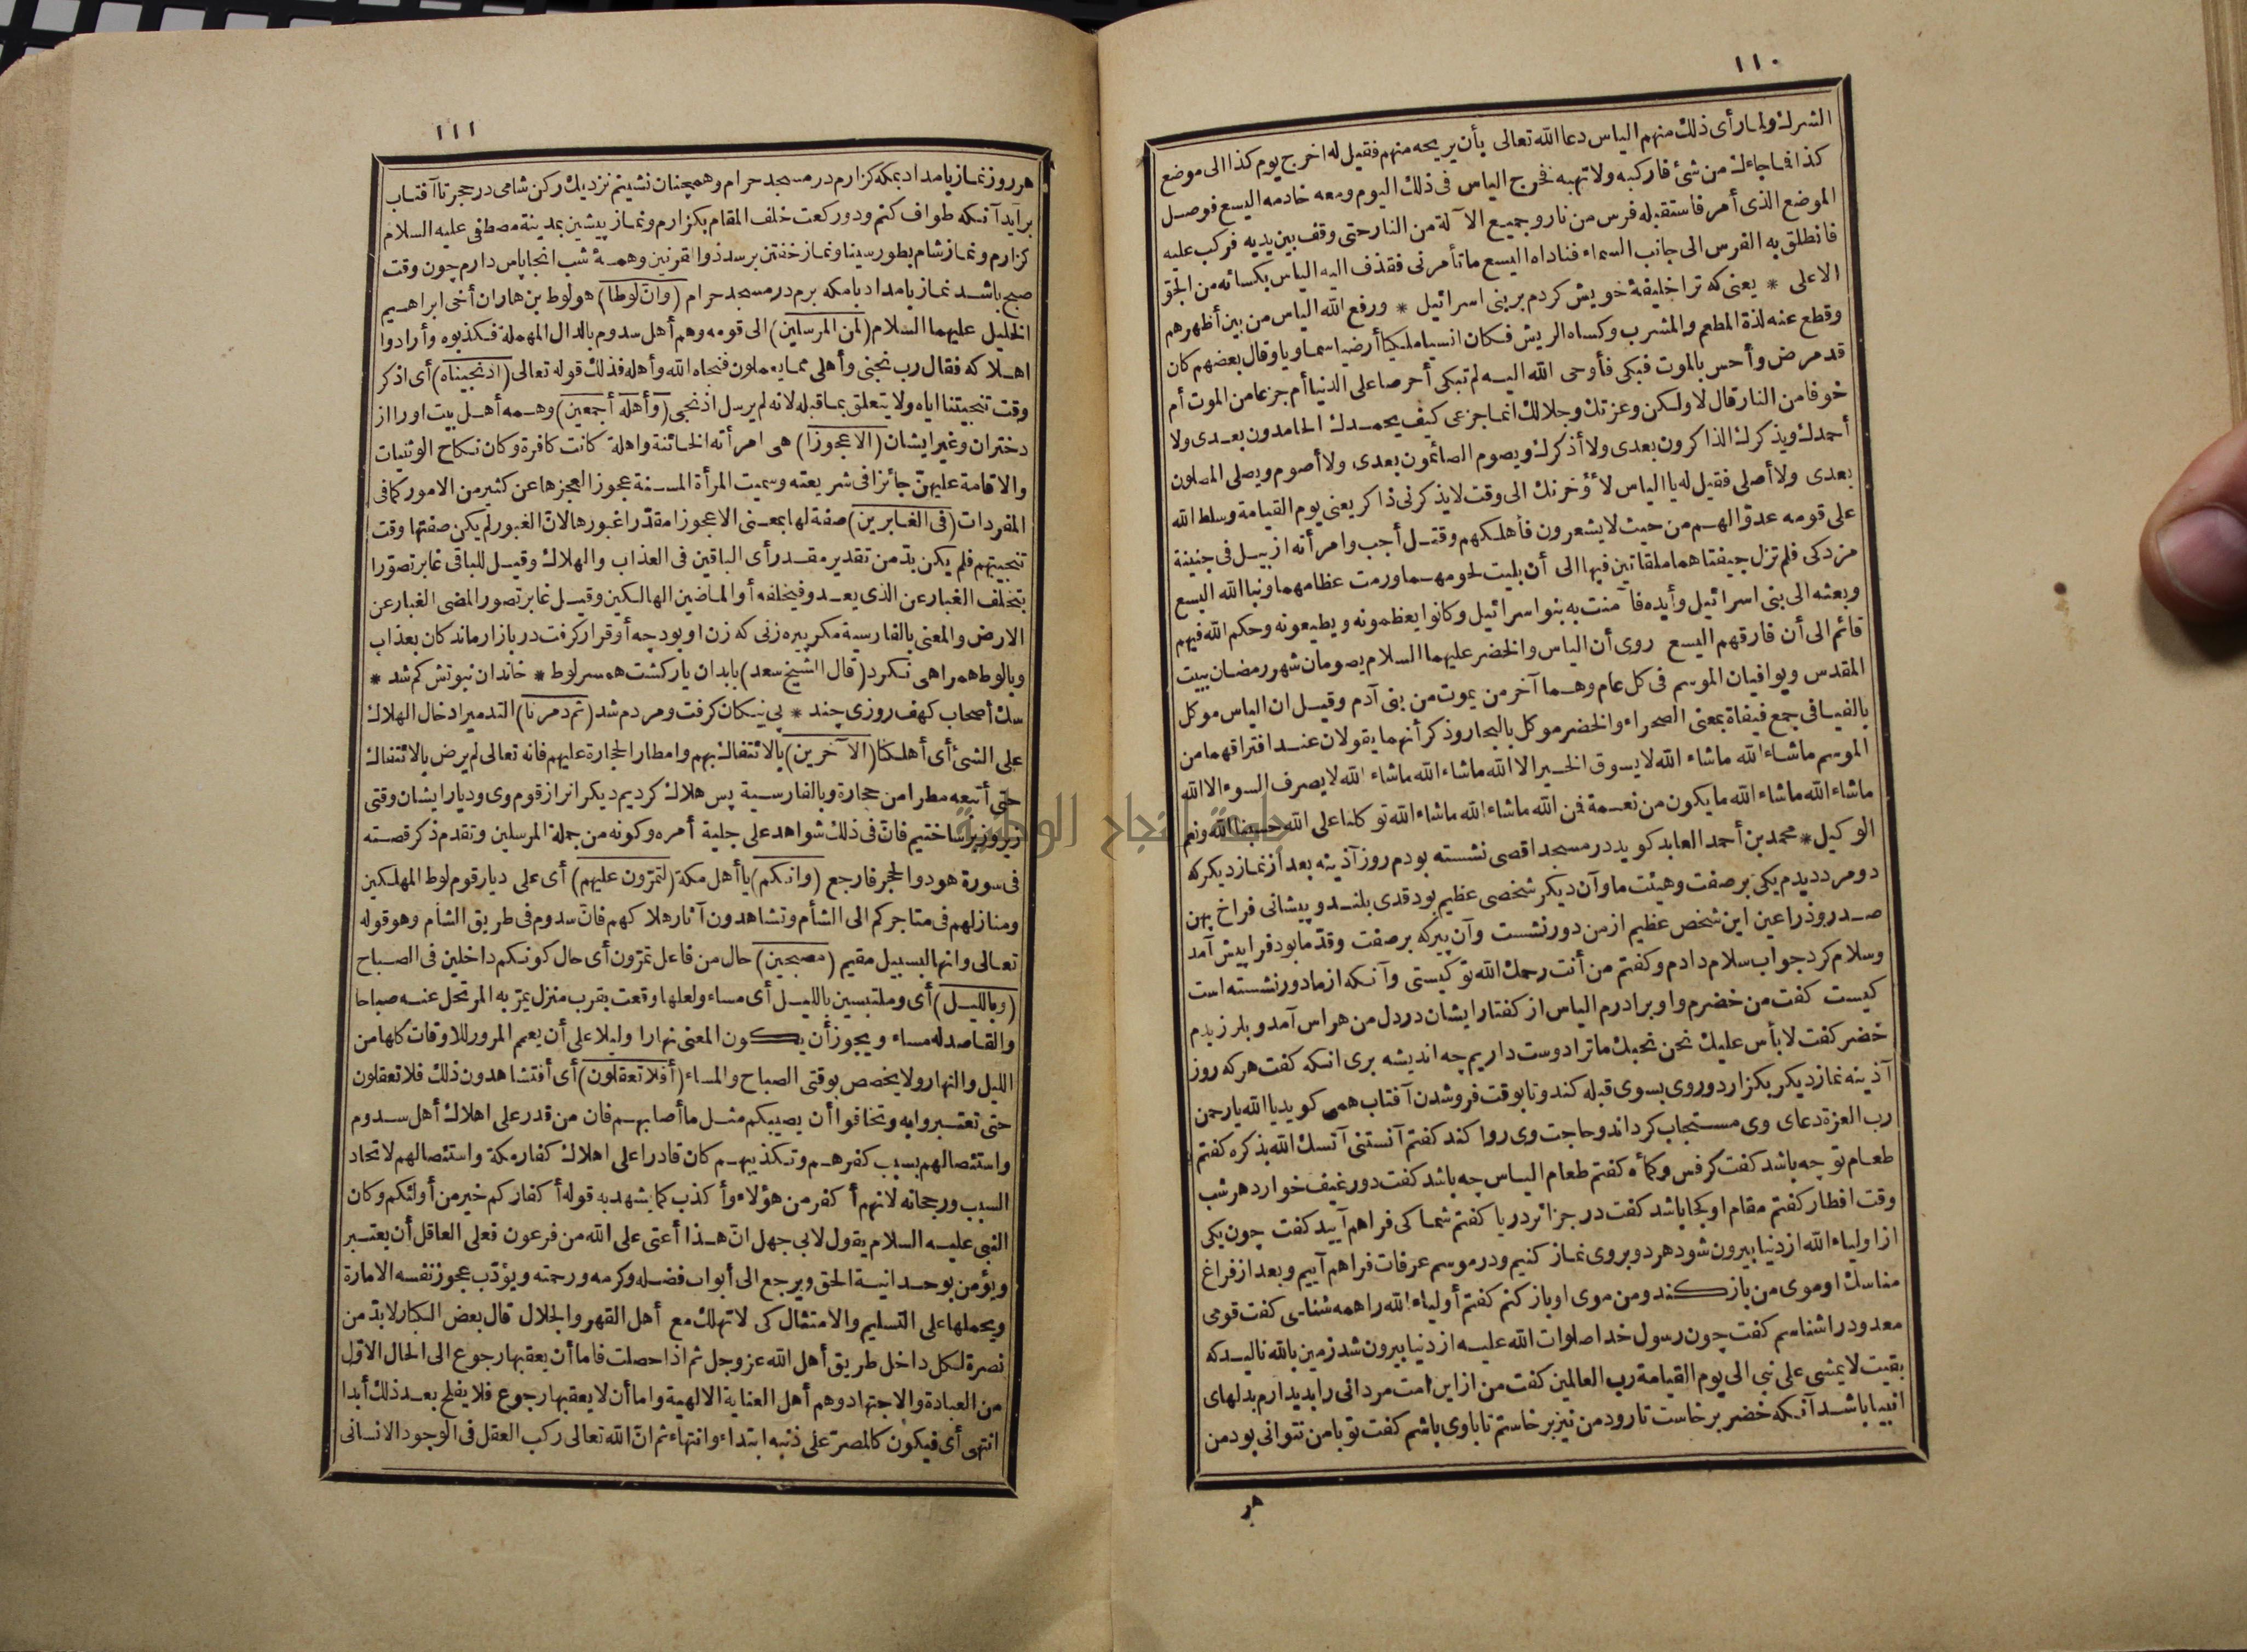 ١١٠
الشرك ولما رأى ذلك منهم الياس دعا الله تعالى بأن يريحه منهم فقيل له اخرج يوم كذا الى موضع
كذا فما جاءك من شئ فاركبه ولا تهبه فخرج الياس فى ذلك اليوم ومعه خادمه اليسع فوصل
الموضع الذى أمر فاستقبله فرس من نار وجميع الآلة من النار حتى وقف بين يديه فركب عليه
فانطلق به الفرس الى جانب السماء فناداه اليسع ما تأمرنى فقذف اليه الياس بكسائه من الجو
الاعلى * يعنى كه ترا خليفۀ خويش كردم بر بنى اسرائيل * ورفع الله الياس من بين أظهرهم
وقطع عنه لذة المطعم والمشرب وكساه الريش فكان انسيا ملكيا أرضيا سماويا وقال بعضهم كان
قد مرض وأحس بالموت فبكى فأوحى الله اليه لم تبكى أحرصا على الدنيا أم جزعا من الموت أم
خوفا من النار قال لا ولكن وعزتك وجلالك انما جزعى كيف يحمدك الحامدون بعدى ولا
أحمدك ويذكرك الذاكرون بعدى ولا أذكرك ويصوم الصائمون بعدى ولا أصوم ويصلى المصلون
بعدى ولا أصلى فقيل له يا الياس لأؤخرنك الى وقت لا يذكرنى ذاكر يعنى يوم القيامة وسلط الله
على قومه عدوّا لهم من حيث لا يشعرون فأهلكهم وقتل أجب وامرأته ازبيل فى جنينة
مزدكى فلم تزل جيفتاهما ملقاتين فيها الى أن بليت لحومهما ورمت عظامهما ونبأ الله اليسع
وبعثه الى بنى اسرائيل وأيده فآمنت به بنو اسرائيل وكانوا يعظمونه ويطيعونه وحكم الله فيهم
قائم الى أن فارقهم اليسع روى أن الياس والخضر عليهما السلام يصومان شهر رمضان ببيت
المقدس ويوافيان الموسم فى كل عام وهما آخر من يموت من بنى آدم وقيل ان الياس موكل
بالفيافى جمع فيفاة بمعنى الصحراء والخضر موكل بالبحار وذكر أنهما يقولان عند افتراقهما من
الموسم ماشاء الله ماشاء الله لا يسوق الخير الا الله ماشاء الله ماشاء الله لا يصرف السوء الا الله
ماشاء الله ماشاء الله ما يكون من نعمة فمن الله ماشاء الله ماشاء الله توكلنا على الله حسبنا الله ونعم
الوكيل * محمد بن أحمد العابد كويد در مسجد اقصى نشسته بودم روز آذينه بعد از نماز ديكر كه
دو مرد ديدم يكى بر صفت وهيئت ما وآن ديكر شخصى عظيم بود قدى بلند و پيشانى فراخ پهن
صدر وذراعين اين شخص عظيم از من دور نشست وآن پير كه بر صفت وقدّ ما بود فرا پيش آمد
وسلام كرد جواب سلام دادم وكفتم من أنت رحمك الله تو كيستى وآنكه از ما دور نشسته است
كيست كفت من خضرم واو برادرم الياس از كفتار ايشان در دل من هراس آمد و بلرزيدم
خضر كفت لا بأس عليك نحن نحبك ما ترا دوست داريم چه انديشه برى انكه كفت هركه روز
آذينه نماز ديكر بكزارد وروى بسوى قبله كند وتا بوقت فرو شدن آفتاب همى كويد يا الله يا رحمن
رب العزة دعاى وى مستجاب كرداند وحاجت وى روا كند كفتم آنستنى آنسك الله بذكره كفتم
طعام تو چه باشد كفت كرفس وكمأه كفتم طعام الياس چه باشد كفت دو رغيف خوارد هر شب
وقت افطار كفتم مقام او كجا باشد كفت در جزائر دريا كفتم شما كى فراهم آييد كفت چون يكى
از اولياء الله از دنيا بيرون شود هر دو بر وى نماز كنيم ودر موسم عرفات فراهم آييم وبعد از فراغ
مناسك او موى من باز كند ومن موى او باز كنم كفتم أولياء الله را همه شناسى كفت قومى
معدود را شناسم كفت چون رسول خدا صلوات الله عليه از دنيا بيرون شد زمين بالله ناليد كه
بقيت لا يمشى على نبى الى يوم القيامة رب العالمين كفت من از اين امت مردانى را پديدارم بدلهاى
انبيا باشد آنكه خضر برخاست تا رود من نيز برخاستم تا باوى باشم كفت تو با من نتوانى بود من
هر
١١١
هر روز نماز بامداد بمكه كزارم در مسجد حرام وهمچنان نشينم نزديك ركن شامى در حجر تا آفتاب
برآيد آنكه طواف كنم ودو ركعت خلف المقام بكزارم ونماز پيشين بمدينة مصطفى عليه السلام
كزارم ونماز شام بطور سينا ونماز خفتن بر سد ذو القرنين وهمۀ شب انجا پاس دارم چون وقت
صبح باشد نماز بامداد با مكه برم در مسجد حرام (وان لوطا) هو لوط بن هاران أخى ابراهيم
الخليل عليهما السلام (لمن المرسلين) الى قومه وهم أهل سدوم بالدال المهملة فكذبوه وأرادوا
اهلاكه فقال رب نجنى وأهلى مما يعملون فنجاه الله وأهله فذلك قوله تعالى (اذ نجيناه) أى اذكر
وقت تنجيتنا اياه ولا يتعلق بما قبله لانه لم يرسل اذ نجى (وأهله أجمعين) وهمه أهل بيت اورا از
دختران وغير ايشان (الا عجوزا) هى امرأته الخائنة واهلة كانت كافرة وكان نكاح الوثنيات
والاقامة عليهنّ جائزا فى شريعته وسميت المرأة المسنة عجوزا لعجزها عن كثير من الامور كما فى
المفردات (فى الغابرين) صفة لها بمعنى الا عجوزا مقدّرا غبورها لانّ الغبور لم يكن صفتها وقت
تنجيتهم فلم يكن بدّ من تقدير مقدر أى الباقين فى العذاب والهلاك وقيل للباقى غابر تصوّرا
بتخلف الغبار عن الذى يعدو فيخلفه أو الماضين الهالكين وقيل غابر تصور المضى الغبار عن
الارض والمعنى بالفارسية مكر پيره زنى كه زن او بود چه أو قرار كرفت در بازارماندكان بعذاب
وبا لوط همراهى نكرد (قال الشيخ سعد) با بدان ياركشت همسر لوط * خاندان نبوتش كم شد *
سك أصحاب كهف روزى چند * پى نيكان كرفت ومردم شد (ثم دمرنا) التدمير ادخال الهلاك
على الشئ أى أهلكنا (الآخرين) بالائتفاك بهم وامطار الحجارة عليهم فانه تعالى لم يرض بالائتفاك
حتى أتبعه مطرا من حجارة وبالفارسية پس هلاك كرديم ديكرانرا از قوم وى وديار ايشان وقتى
زير وزبر ساختيم فانّ فى ذلك شواهد على جلية أمره وكونه من جملة المرسلين وتقدم ذكر قصته
فى سورة هود والحجر فارجع (وانكم) يا أهل مكة (لتمرّون عليهم) أى على ديار قوم لوط المهلكين
ومنازلهم فى متاجركم الى الشأم وتشاهدون آثار هلاكهم فانّ سدوم فى طريق الشأم وهو قوله
تعالى وانها لبسبيل مقيم (مصبحين) حال من فاعل تمرّون أى حال كونكم داخلين فى الصباح
(وبالليل) أى وملتبسين بالليل أى مساء ولعلها وقعت بقرب منزل يمرّ به المرتحل عنه صباحا
والقاصد له مساء ويجوز أن يكون المعنى نهارا وليلا على أن يعمم المرور للاوقات كلها من
الليل والنهار ولا يخصص بوقتى الصباح والمساء (أفلا تعقلون) أى أفتشاهدون ذلك فلا تعقلون
حتى تعتبروا به وتخافوا أن يصيبكم مثل ما أصابهم فان من قدر على اهلاك أهل سدوم
واستئصالهم بسبب كفرهم وتكذيبهم كان قادرا على اهلاك كفار مكة واستئصالهم لاتحاد
السبب ورجحانه لانهم أكفر من هؤلاء وأكذب كما يشهد به قوله أكفاركم خير من أولئكم وكان
النبى عليه السلام يقول لابى جهل انّ هذا أعتى على الله من فرعون فعلى العاقل أن يعتبر
ويؤمن بوحدانية الحق ويرجع الى أبواب فضله وكرمه ورحمته ويؤدّب عجوز نفسه الامارة
ويحملها على التسليم والامتثال كى لا تهلك مع أهل القهر والجلال قال بعض الكبار لابدّ من
نصرة لكل داخل طريق أهل الله عز وجل ثم اذا حصلت فاما أن يعقبها رجوع الى الحال الاوّل
من العبادة والاجتهاد وهم أهل العناية الالهية واما أن لا يعقبها رجوع فلا يفلح بعد ذلك أبدا
انتهى أى فيكون كالمصرّ على ذنبه ابتداء وانتهاء ثم انّ الله تعالى ركب العقل فى الوجود الانسانى
جامعة النجاح الوطنية